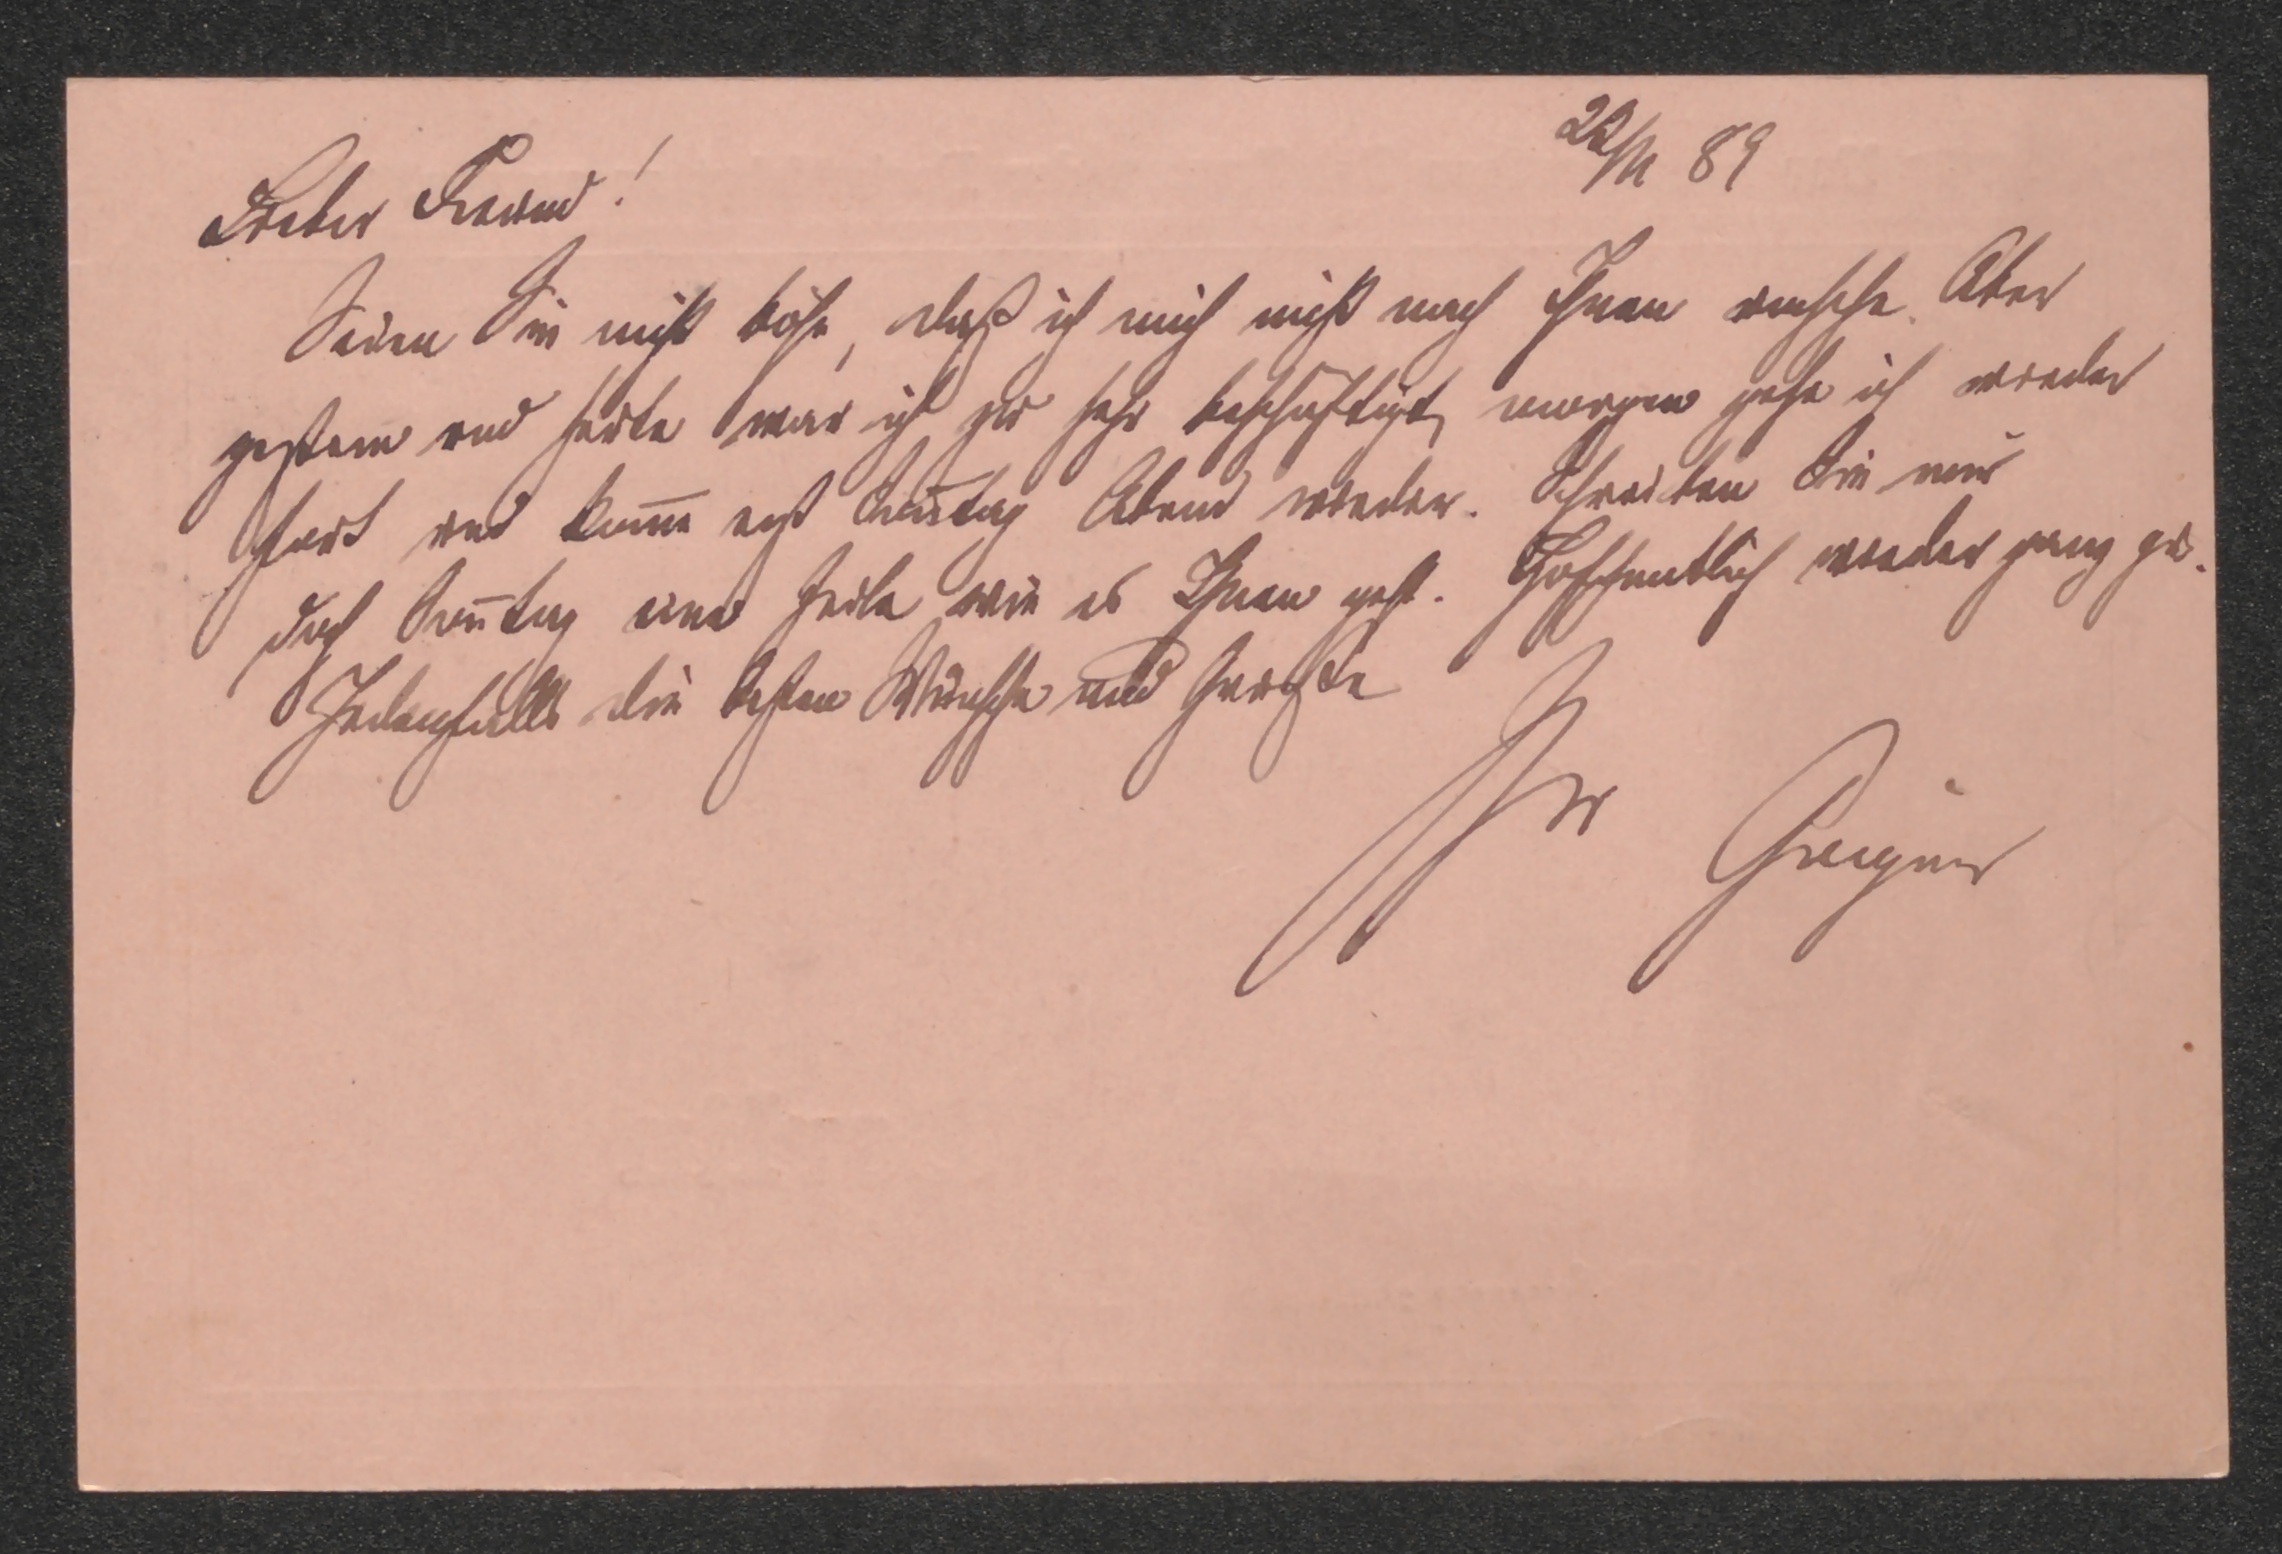 22/11 89
Lieber Freund!
Seien Sie nicht böse, daß ich mich nicht nach Ihnen umsehe. Aber
gestern und heute war ich zu sehr beschäftigt, morgen gehe ich wieder
fort und kom̅e erst Son̅tag Abend wieder. Schreiben Sie mir
doch Son̅tag eine Zeile wie es Ihnen geht. Hoffentlich wieder ganz gut.
Jedenfalls die besten Wünsche und Grüße
Ihr